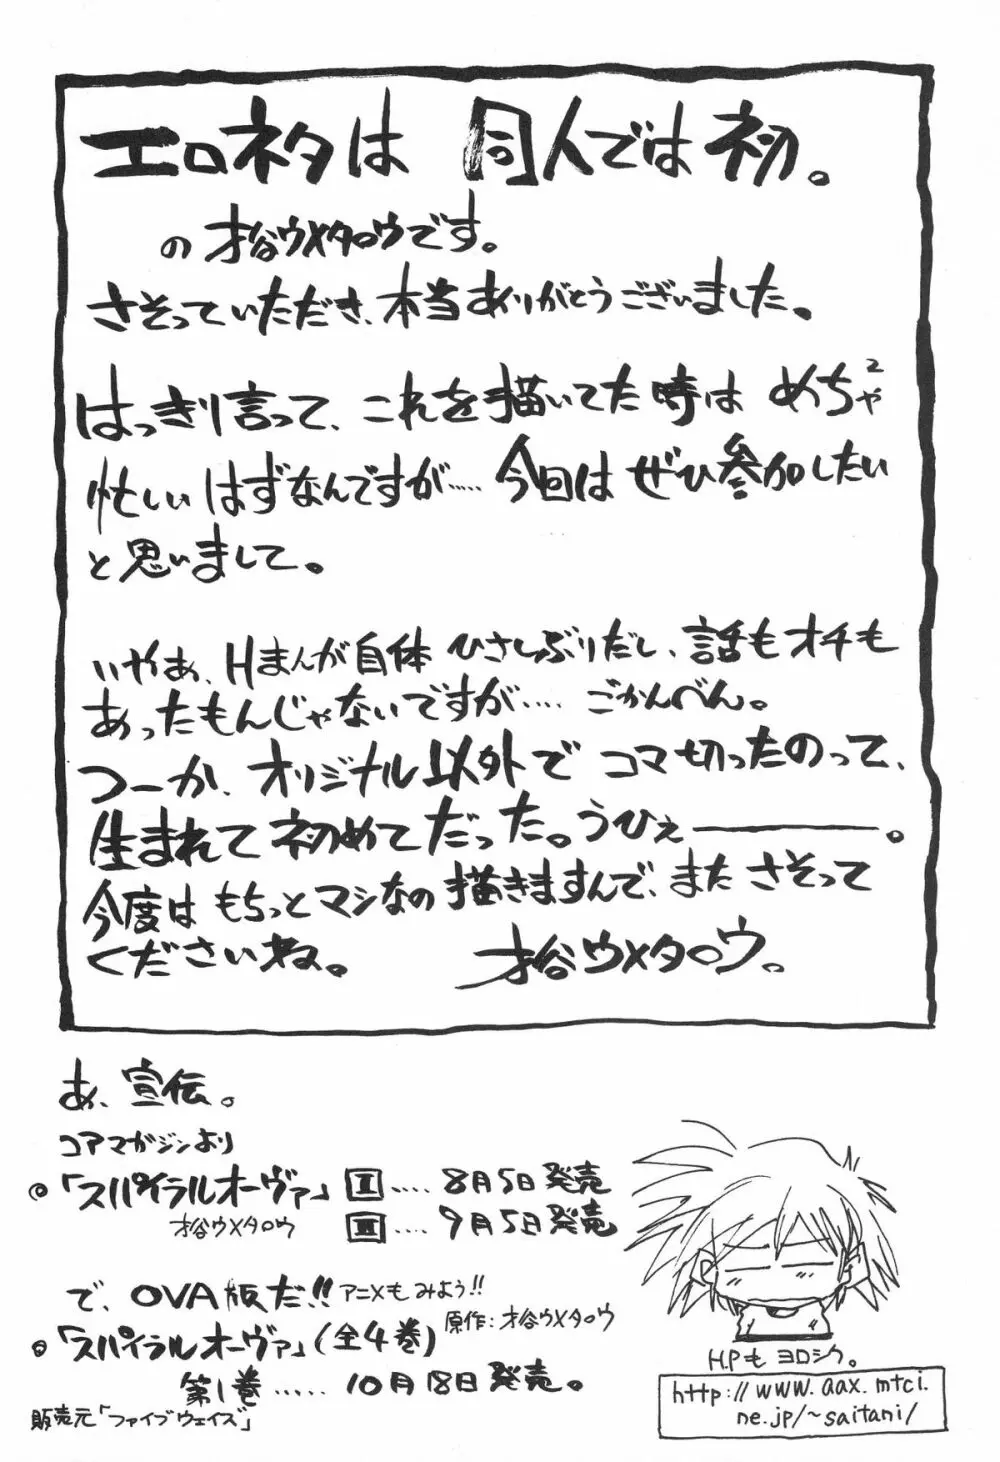 エロネタは 同人では初。
の 才谷ウメタロウです。
さそっていただき、本当ありがとうございました。
はっきり言って、これを描いてた時は めちゃ2
忙しい はずなんですが‥‥ 今回は ぜひ参加したい
と思いまして。
いやぁ、Hまんが自体 ひさしぶりだし、話もオチも
あったもんじゃないですが‥‥ ごかんべん。
つーか、オリジナル以外で コマ切ったのって、
生まれて初めてだった。うひぇ―――。
今度は もちっとマシなの描きますんで、また さそって
くださいね。 才谷ウメタロウ。
あ、宣伝。
コアマガジンより
◎「スパイラルオーヴァ」 Ⅱ‥‥ 8月5日発売
才谷ウメタロウ Ⅲ‥‥ 9月5日発売
で、OVA版だ!! アニメもみよう!!
◎「スパイラルオーヴァ」(全4巻) 原作:才谷ウメタロウ
第1巻‥‥‥ 10月18日発売。
販売元「ファイブウェイズ」
H.Pも ヨロシク。
http://www.aax.mtci.
ne.jp/~saitani/